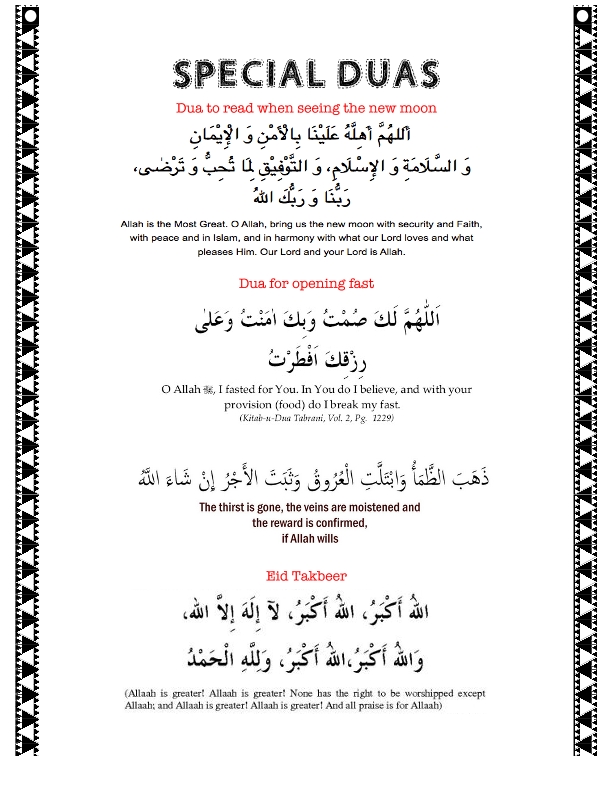 SPECIAL DUAS
Dua to read when seeing the new moon
اَللهُمَّ اَهِلَّهُ عَلَيْنَا بِالْاَمْنِ وَ الْاِيْمَانِ
وَ السَّلَامَةِ وَ الإِسْلَامِ، وَ التَّوْفِيْقِ لِمَا تُحِبُّ وَ تَرْضٰى،
رَبُّنَا وَ رَبُّكَ اللهُ
Allah is the Most Great. O Allah, bring us the new moon with security and Faith,
with peace and in Islam, and in harmony with what our Lord loves and what
pleases Him. Our Lord and your Lord is Allah.
Dua for opening fast
اَللّٰهُمَّ لَكَ صُمْتُ وَبِكَ اٰمَنْتُ وَعَلٰى
رِزْقِكَ اَفْطَرْتُ
O Allah ﷻ, I fasted for You. In You do I believe, and with your
provision (food) do I break my fast.
(Kitab-u-Dua Tabrani, Vol. 2, Pg. 1229)
ذَهَبَ الظَّمَأُ وَابْتَلَّتِ الْعُرُوقُ وَثَبَتَ الأَجْرُ إِنْ شَاءَ اللَّهُ
The thirst is gone, the veins are moistened and
the reward is confirmed,
if Allah wills
Eid Takbeer
اللهُ أَكْبَرُ، اللهُ أَكْبَرُ، لآ إِلَهَ إِلاَّ الله،
وَاللهُ أَكْبَرُ،اللهُ أَكْبَرُ، وَلِلَّهِ الْحَمْدُ
(Allaah is greater! Allaah is greater! None has the right to be worshipped except
Allaah; and Allaah is greater! Allaah is greater! And all praise is for Allaah)